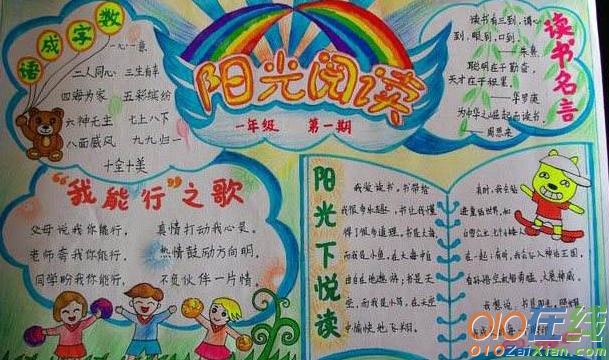 数字成语
一心一意
二人同心 三生有幸
四海为家 五彩缤纷
六神无主 七上八下
八面威风 九九归一
十全十美
阳光阅读
一年级 第一期
读书名言
读书有三到,谓心
到,眼到,口到。
——朱熹
聪明在于勤奋,
天才在于积累。
——华罗庚
为中华之崛起而读书
——周恩来
“我能行”之歌
父母说我你能行, 真情打动我心灵。
老师夸我你能行, 热情鼓励方向明。
同学盼我你能行, 不负伙伴一片情。
阳光下悦读
我爱读书,书带给
我很多乐趣,书让我懂
得了很多道理。书是大海
而我是小鱼,在大海中自
由自在地遨游;书是天
空,而我是小鸟,在天空
中愉快地飞翔。
有时,我会钻
进童话世界,和
白雪公主
在一起;有时,我会
我想说,书是阳光,照耀
010在线
010Zaixian.com